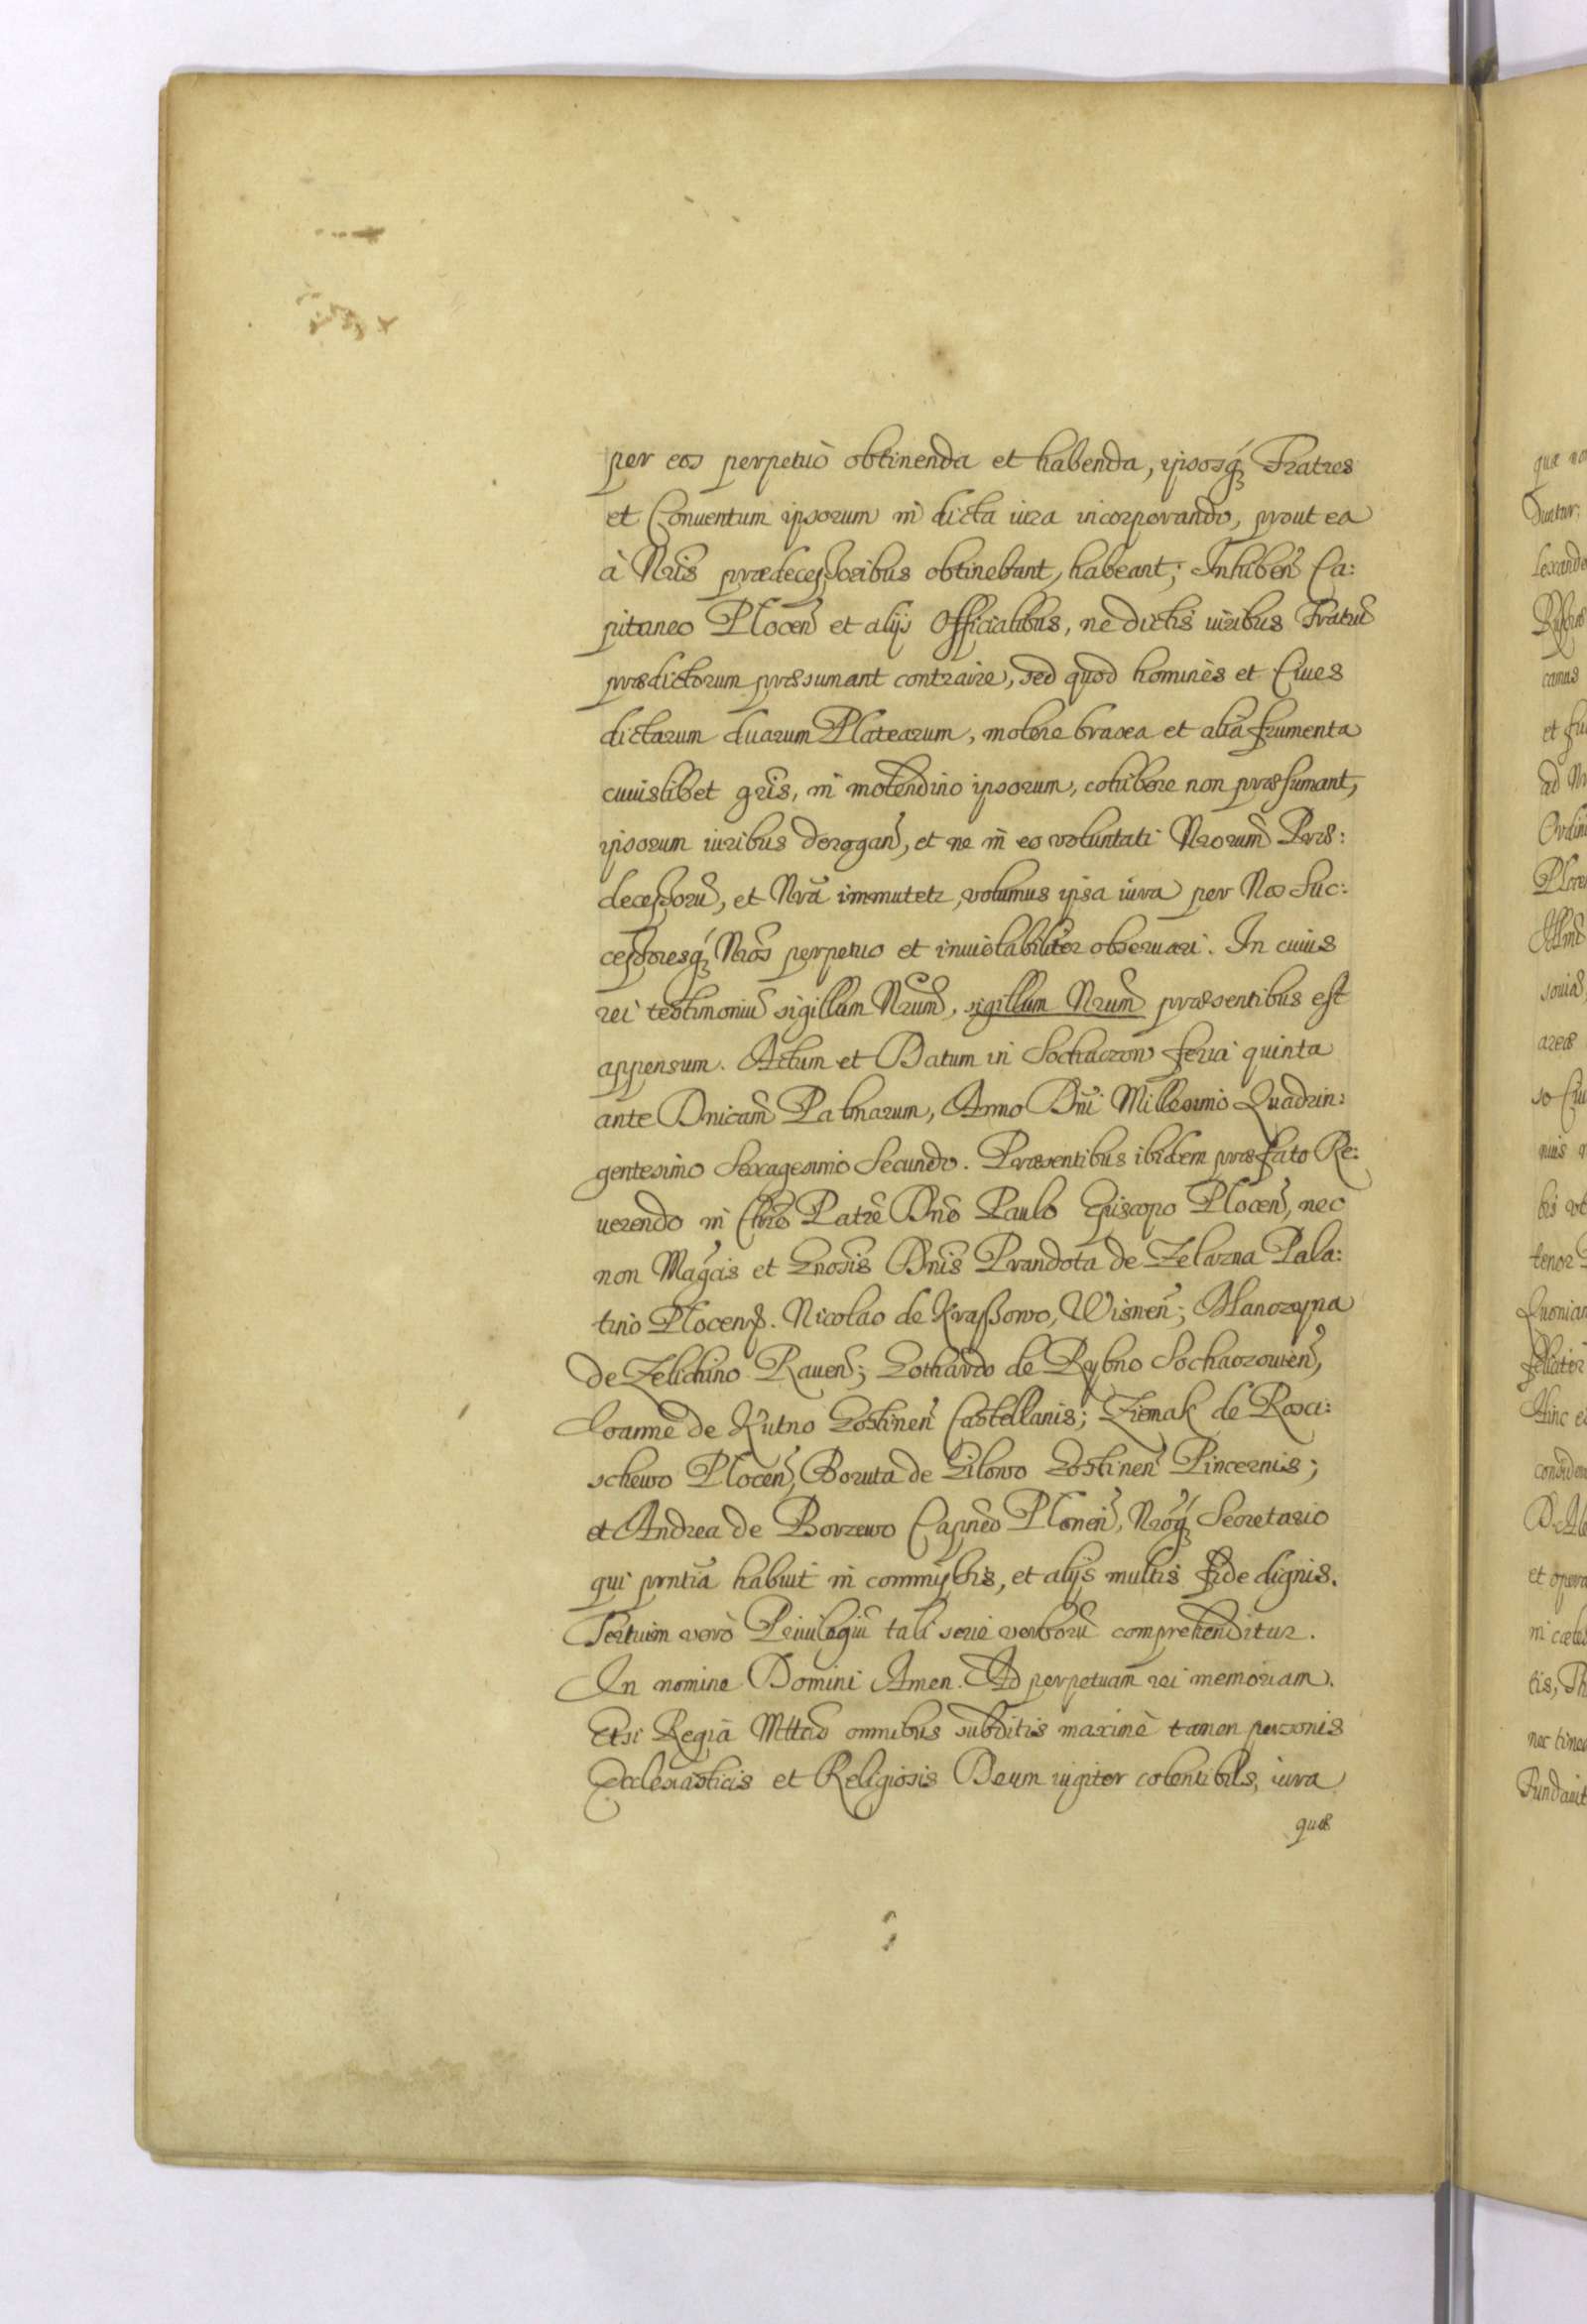 per eos perpetuò obtinenda et habenda, ipsosq́ꝫ Fratres
et Conuentum ipsorum in dicta iura incorporando, prout ea
à Nris̃ prædecessoribus obtinebant, habeant; Inhibeñ Ca:
pitaneo Ploceñ et alijs Officialibus, ne dictis iuribus Fratrũ
prædictorum præsumant contraire, sed quod homines et Ciues
dictarum duarum Platearum, molere brasea et alia frumenta
cuiuslibet gñris, in molendino ipsorum, cohibere non præsumant,
ipsorum iuribus deroggañ, et ne in eo voluntati Nrorum̃ Præ:
decessorũ, et Nrã immutetr, volumus ipsa iura per Nos Suc:
cessoresq́ꝫ Nrõs perpetuo et inuiolabiliter obseruari. In cuius
rei testimoniũ sigillum Nrum̃, sigillum Nrum̃ præsentibus est
appensum. Actum et Datum in Sochaczow feria quinta
ante Dnicam̃ Palmarum, Anno Dñi Millesimo Quadrin:
gentesimo Sexagesimo Secundo. Præsentibus ibidem præfato Re:
uerendo in Chrõ Patrẽ Dnõ Paulo Episcopo Ploceñ, nec
non Magcis̃ et Gnosis̃ Dnis̃ Prandota de Zelazna Pala:
tino Plocens. Nicolao de Kraßowo, Wisneñ;
de Zelichino Raueñ; Gothardo de Rybno Sochaczouieñ,
Ioanne de Kutno Gostineñ Castellanis; Ziemak de Rosci:
schewo Ploceñ, Boruta de Gilowo Gostineñ Pincernis;
et Andrea de Borzewo Capneõ Ploneñ, Nroq́ꝫ Secretario
qui pñtia habuit in commissis, et alijs multis fide dignis.
Tertium verò Priuilegiũ tali serie verborũ comprehenditur.
In nomine Domini Amen. Ad perpetuam rei memoriam.
Etsi Regia Mttas̃ omnibus subditis maximè tamen personis
Ecclesiasticis et Religiosis Deum iugiter colentibus, iura
quæ